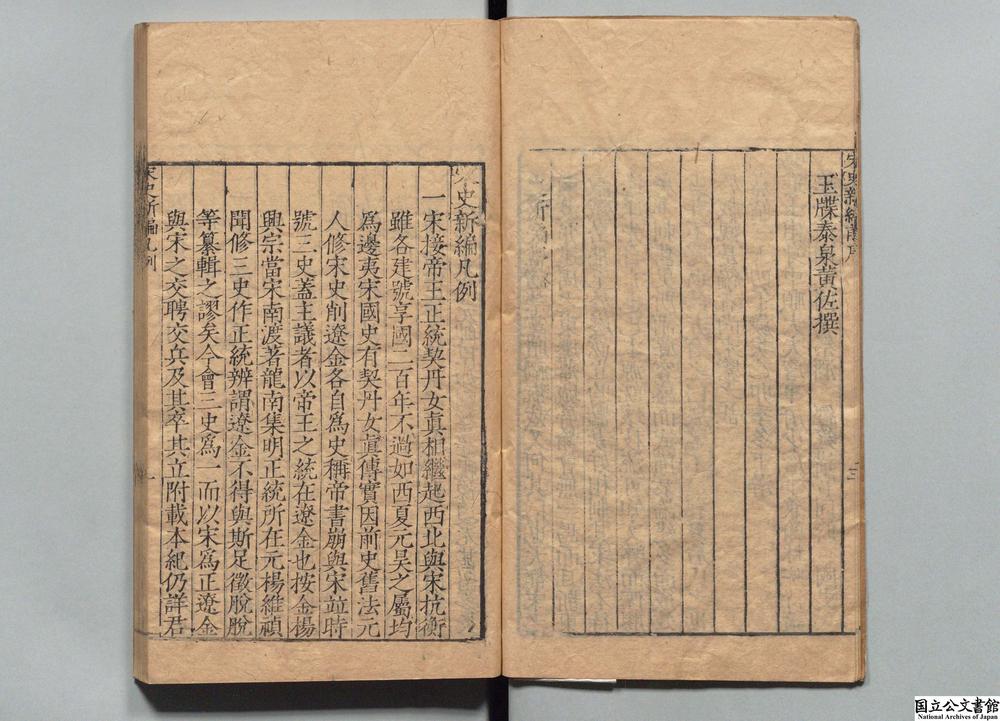 玉牒泰泉黃佐撰
三
史新編凡例
一宋接帝王正統契丹女眞相繼起西北與宋抗衡
雖各建號享國二百年不過如西夏元昊之屬均
爲邊夷宋國史有契丹女眞傳實因前史舊法元
人修宋史削遼金各自爲史稱帝書崩與宋竝時
號三史葢主議者以帝王之統在遼金也按金楊
興宗當宋南渡著龍南集明正統所在元楊維禎
聞修三史作正統辨謂遼金不得與斯足徵脫脫
等纂輯之謬矣今會三史爲一而以宋爲正遼金
與宋之交聘交兵及其卒其立附載本紀仍詳君
宋史新編凡例
一
国立公文書館
National Archives of Japan